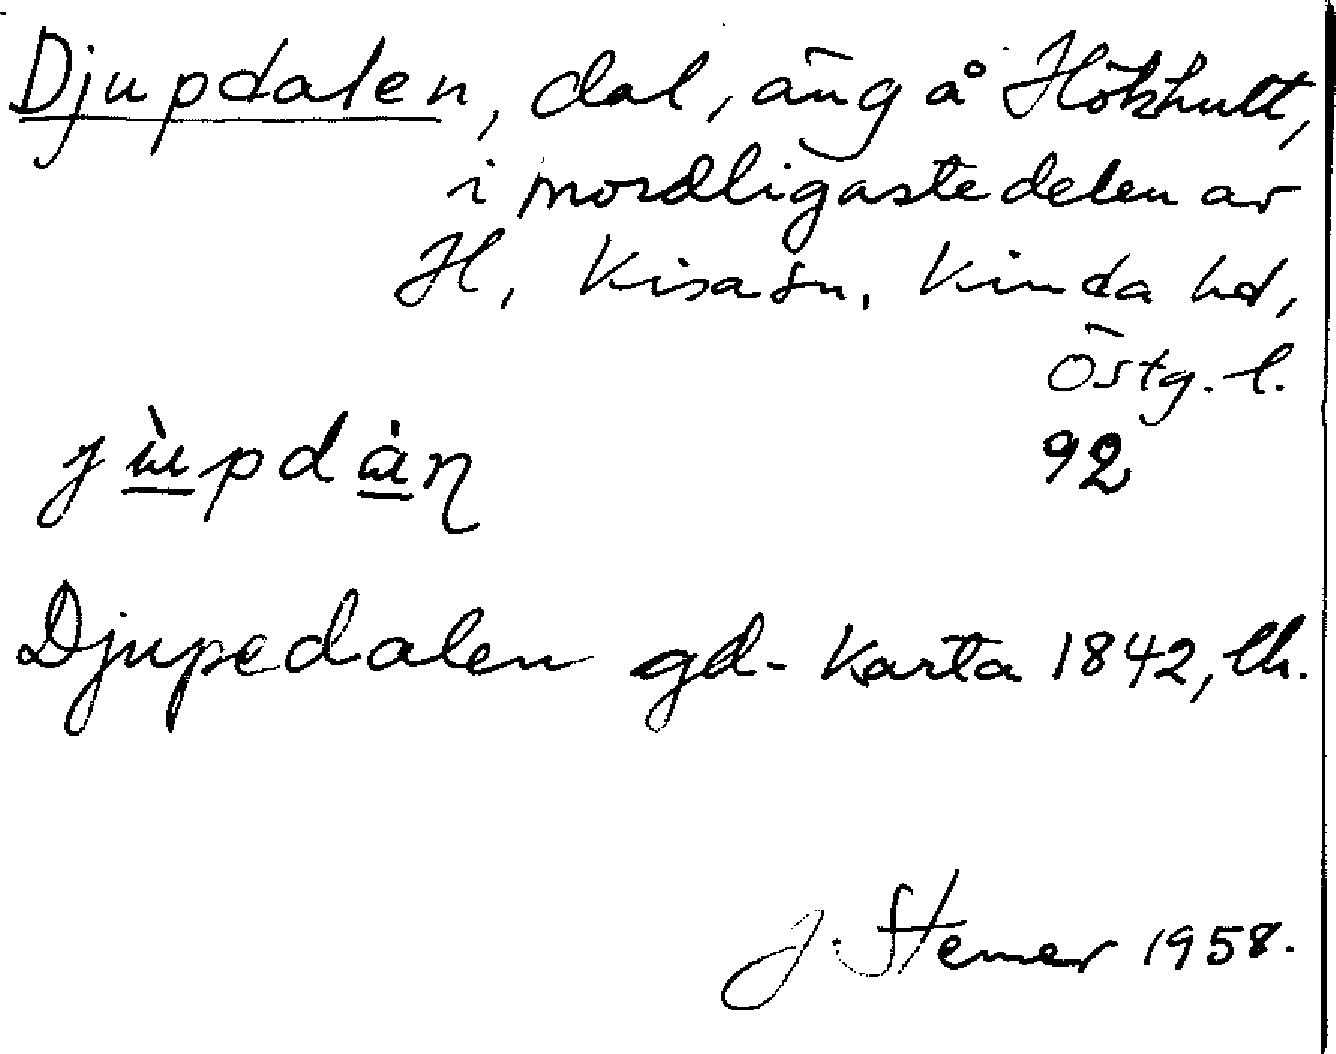 Djupdalen, dal, äng å Hökhult,
i nordligaste delen av
H, Kisa sn, Kinda hd,
Östg. l.
92
Djupedalen gd - Karta 1842, lh.
J. Stemer 1958.